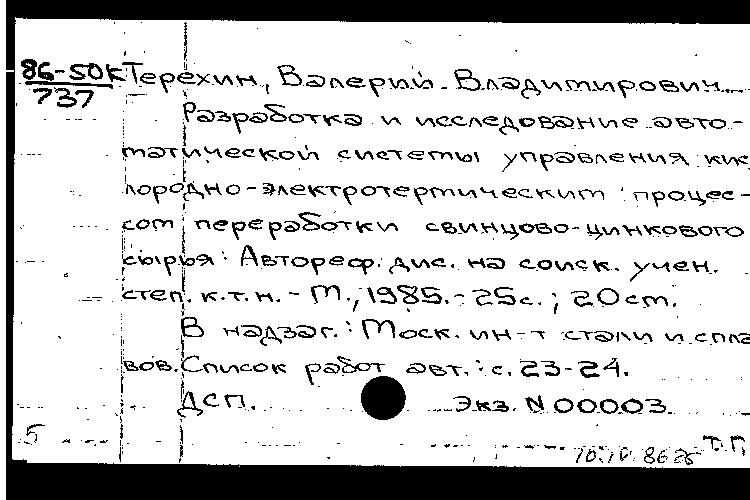 86-50К Терехин, Валерий Владимирович.
737
Разработка и исследование авто-
матической системы управления кис
лородно-электротермическим процес-
сом переработки свинцово-цинкового
сырья: Автореф. дис. на соиск. учен.
степ. к.т.н. - М., 1985. - 25с.; 20см.
В надзаг.: Моск. ин-т стали и спла
вов. Список работ авт.: с. 23-24.
ДСП. Экз. N 00003.
5
Т.П